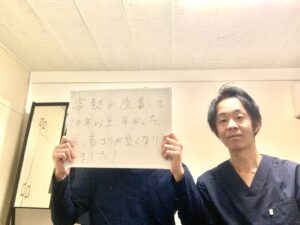 姿勢が改善して
10年以上辛かった
首コリが良くなり
ました！